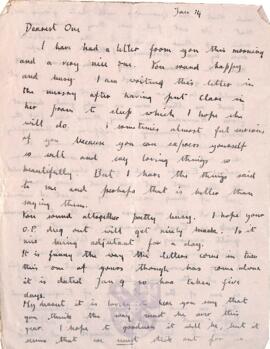 Jan 14
Dearest One
I have had a letter from you this morning
and a very nice one. You sound happy
and busy. I am writing this letter in
the nursery after having put Clare in
her pram to sleep which I hope she
will do. I sometimes almost feel envious
of you because you can express yourself
so well and say loving things so
beautifully. But I have the things said
to me and perhaps that is better than
saying them.
You sound altogether pretty busy. I hope your
O.P. dug out will get nicely made. Is it
nice being adjutant for a day.
It is funny the way the letters come in two
this one of yours though has come alone
it is dated Jan 9 so has taken five
days.
My dearest it is to hear you say that
you think the war must be over this
year. I hope to goodness it will be, but it
seems that we must stick out for a